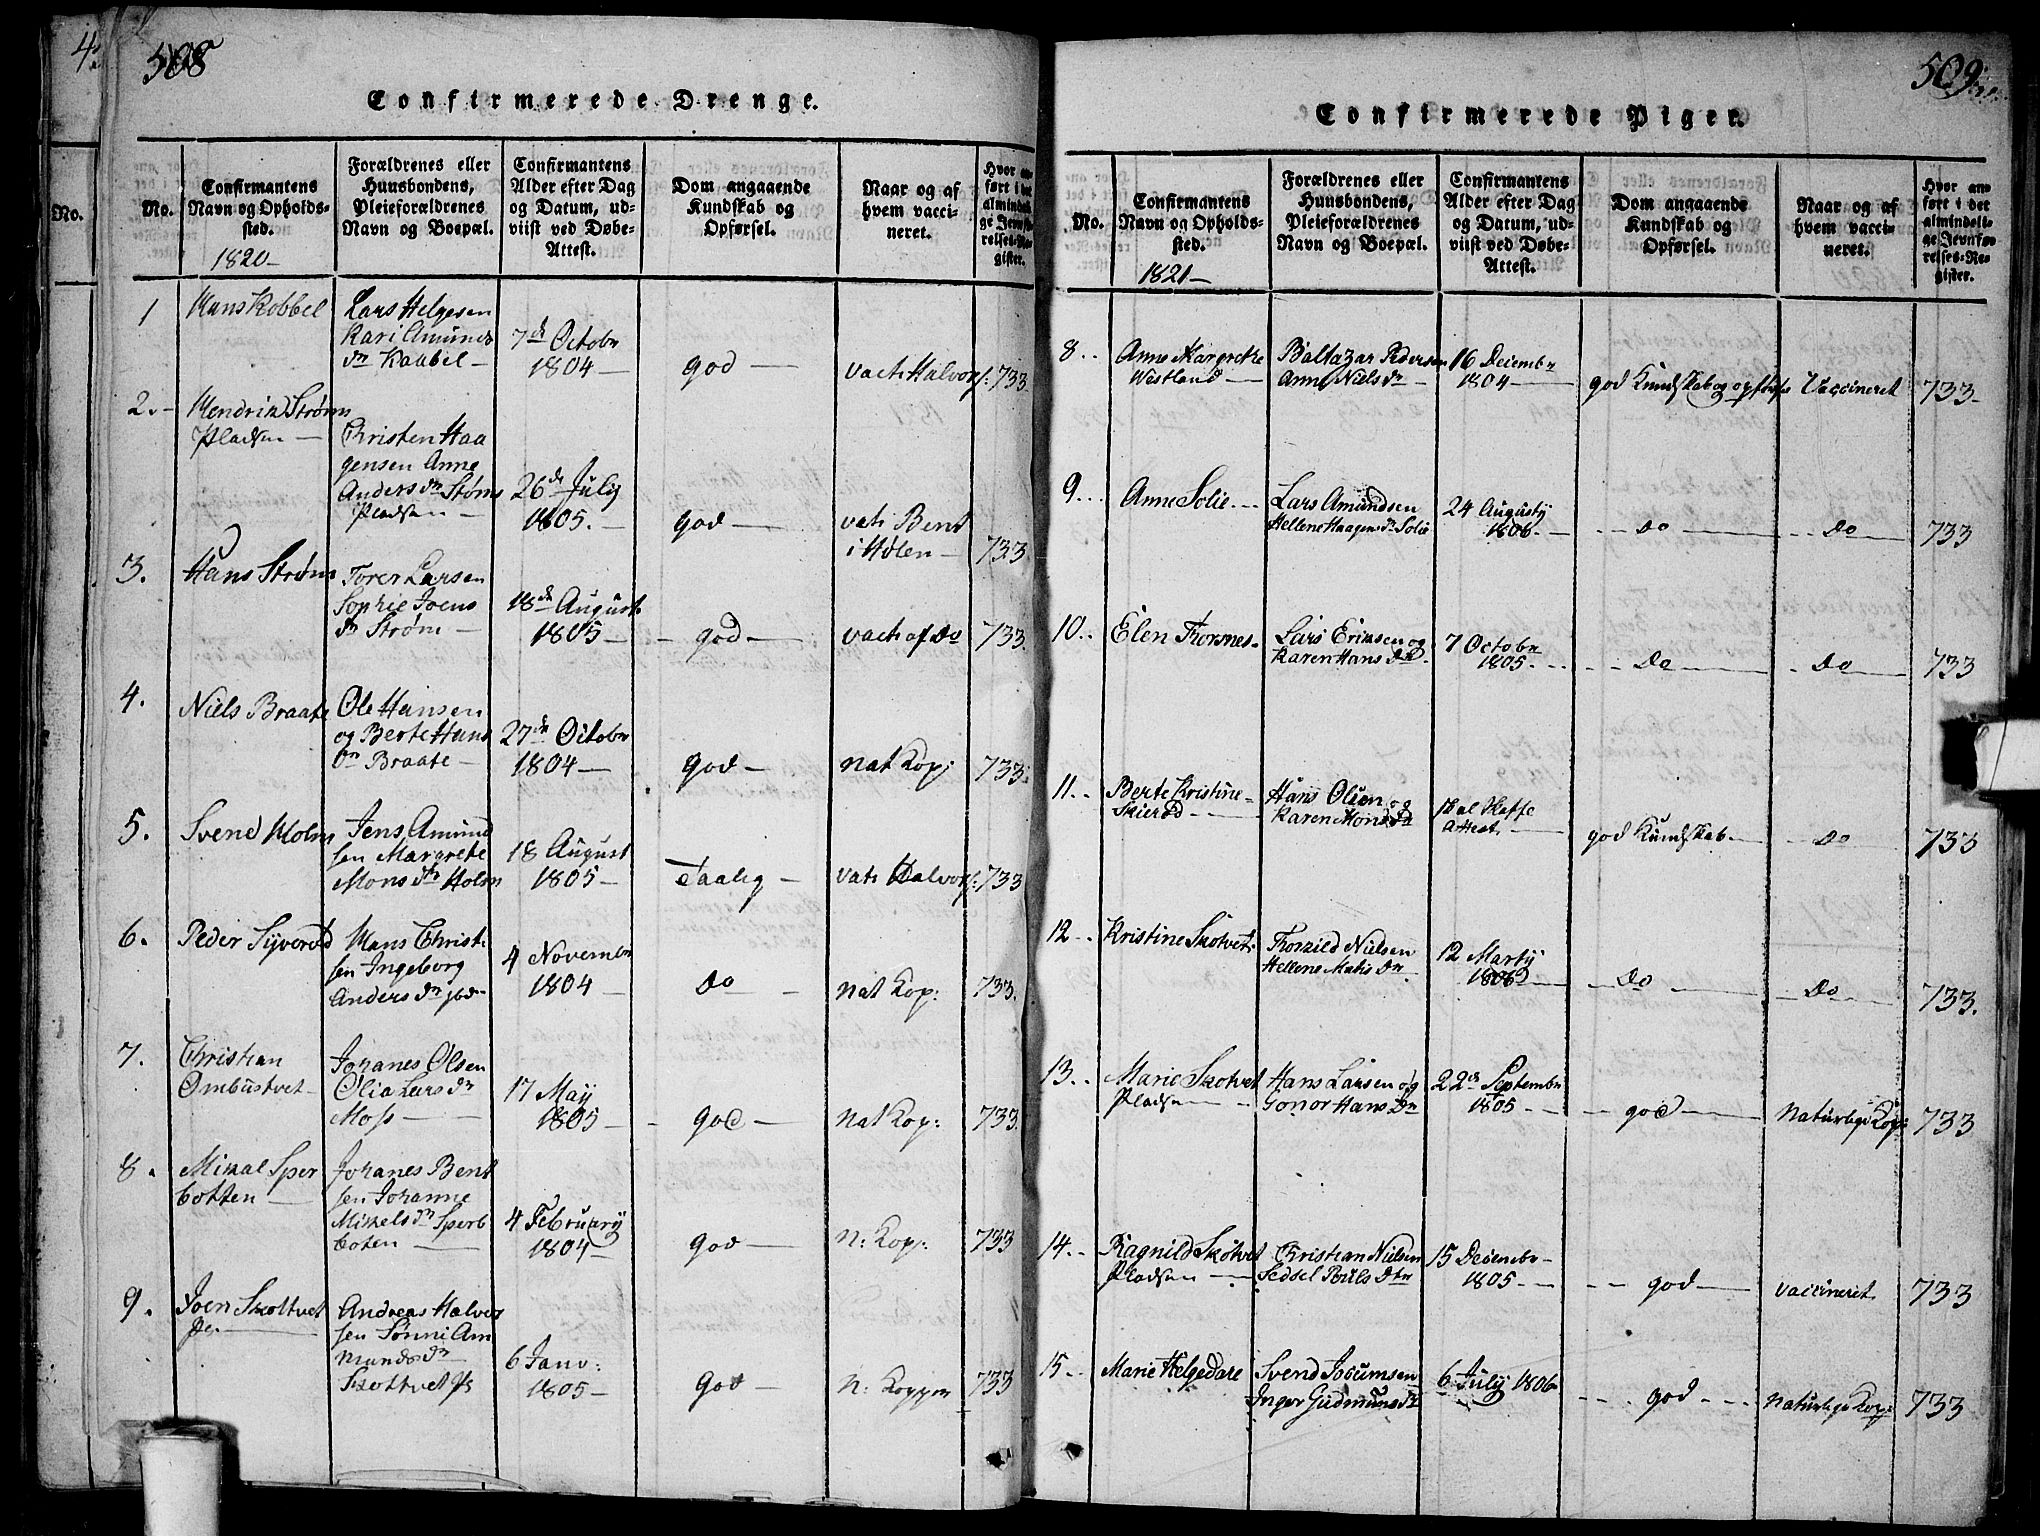 508
Confirmerede Drenge.
No.
No.
Confirmantens Navn og Opholdssted.
1820
Forældrenes eller Huusbondens, Pleieforældrenes Navn og Boepæl.
Confirmantens Alder efter Dag og Datum, udviist ved Døbe-Attest.
Dom angaaende Kundskab og Opførsel.
Naar og af hvem vaccineret.
Hvor anført i det almindelige Jevnførelses-Register.
1
Hans Kobbel
Lars Helgesen
Kari Amunds
dr Kaabel
7de Octobr
1804
god
vact: Halvors: 733
2.
Hendrik Strøms
Pladsen
Christen Haa
gensen Anne
Anders dr Støms
Pladsen
26de July
1805.
god
vat: Bent
i Hølen
733
3.
Hans Strøm
Torer Larsen
Sophie Joens
dr Strøm
18de August
1805
god
vact af Do
733.
4.
Niels Braate
Ole Hansen
og Berte Hans
dr Braate
27de Octobr
1804
god
nat Kop:
733.
5.
Svend Holm
Jens Amund
sen Margrete
Mons dtr Holm
18 August
1805
Taalig
vat: Halvors: 733
6.
Peder Syverød
Hans Christ:
sen Ingeborg
Anders dr ibd
4 Novembr
1804
do
nat Kop:
733.
7.
Christian
Ombustvet
Johanes Olsen
Olia Lars dr
Moss
17 May
1805
god
nat Kop:
733.
8.
Mikal Sper
botten
Johanes Bent
sen Johanne
Mikkels dr Sperb
boten
4 February
1804
god
n: Kop:
733
9.
Joen Skottvet
Pl.
Andreas Halvor
sen Sønni Am
munds dr
Skottvet Pl
6 Janv:
1805
god
n: Kopper
733
509
Confirmerede Piger.
No.
Confirmantens Navn og Opholdssted.
1821
Forældrenes eller Huusbondens, Pleieforældrenes Navn og Boepæl.
Confirmantens Alder efter Dag og Datum, udviist ved Døbe-Attest.
Dom angaaende Kundskab og Opførsel.
Naar og af hvem vaccineret.
Hvor anført i det almindelige Jevnførelses-Register.
8
Anne Margrethe
Westland
Baltazar Pedersen
Anne Niels dr
16 Decembr
1804
god Kundskab og opførse
Vaccineret
733
9
Anne Solie
Lars Amundsen
Hellene Haagens dr Solie
24 Augusty
1806
do
do
733
10
Elen Thorsnes
Lars Eriksen og
Karen Hans dr
7 Octobr
1805
do
do
733
11
Berte Kristine
Skierød
Hans Olsen og
Karen Mons dr
skal skaffe
attest
god Kundskab
do
733
12
Kristine Skotvet
Thorkild Nielsen
Hellene Matis dr
12 Marty
1806
do
do
733.
13
Marie Skotvet
Pladsen
Hans Larsen og
Gonor Hans dr
22de Septembr
1805
god
naturlige Kop:
733
14
Ragnild Skotvet
Pladsen
Christian Nielsen
Sedsel Pouls dtr
15 Decembr
1805
god
vaccineret
733
15
Marie Helgedare
Svend Jocumsen
Inger Gudmunds dr
6 July 1806
god
naturlige Kop:
733